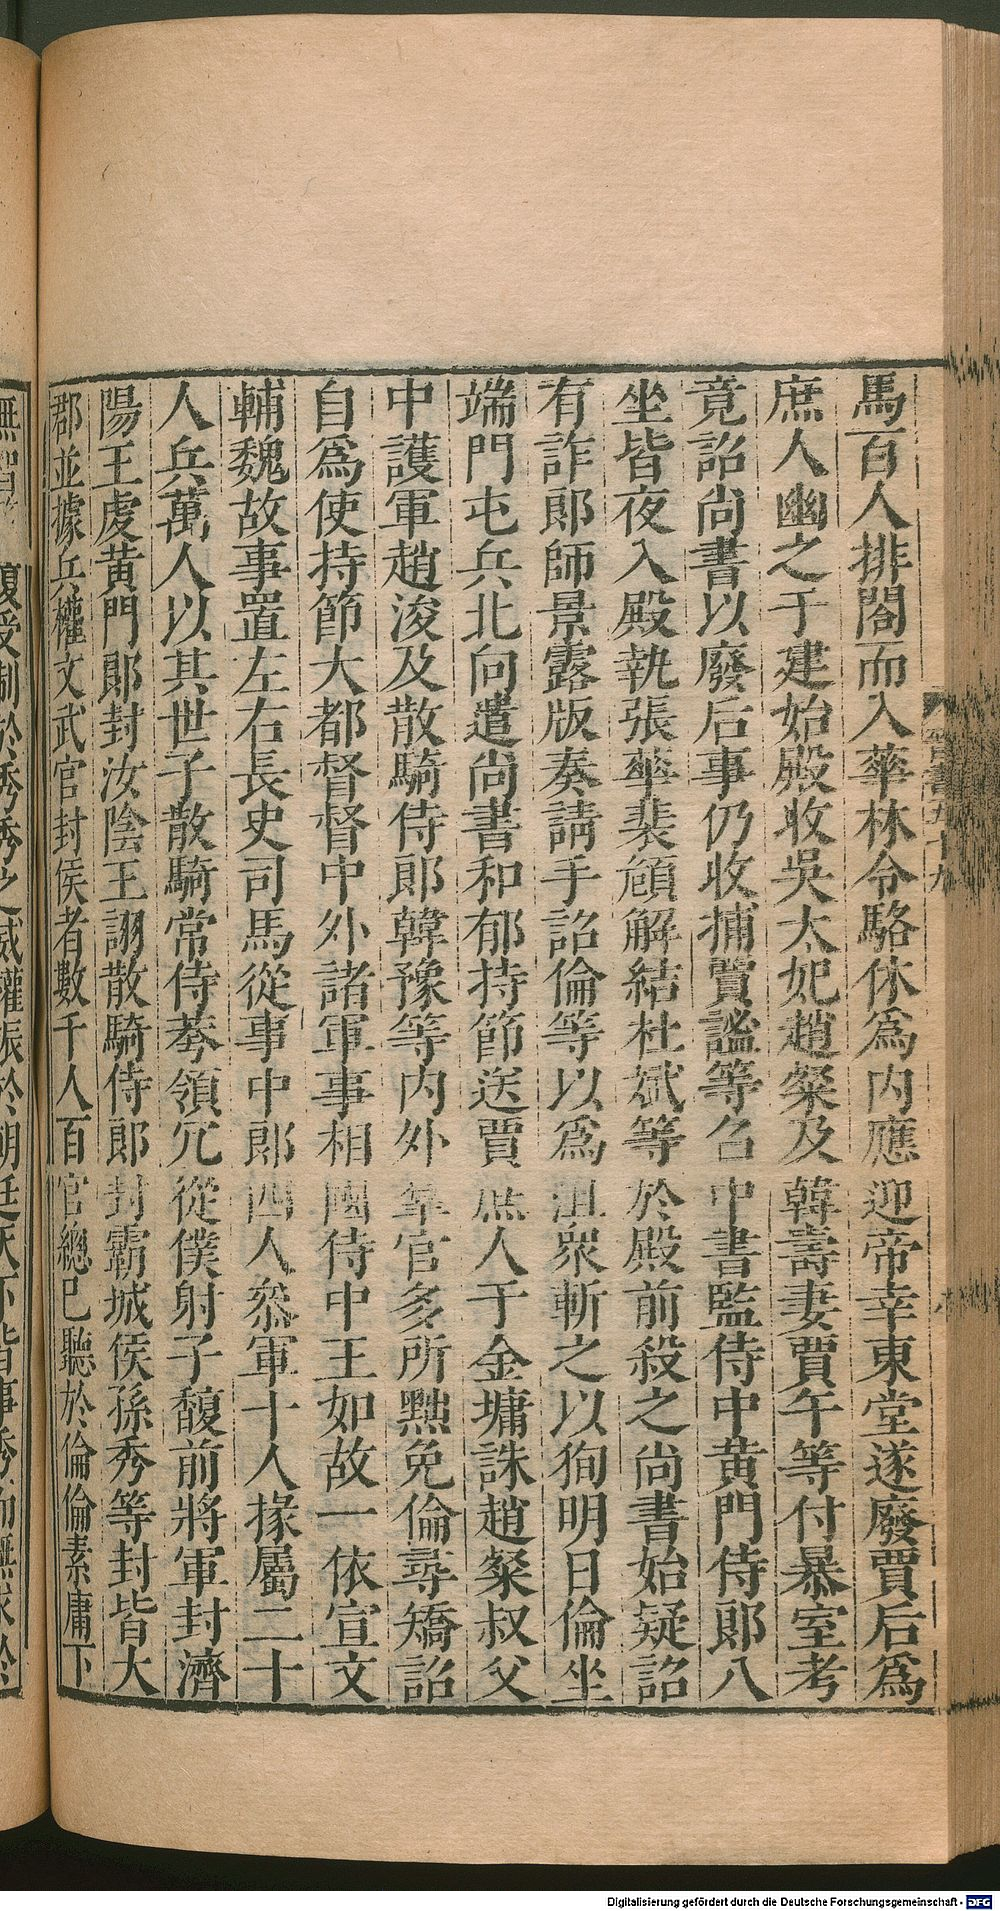 馬百人排閤而入華林令駱休爲内應迎帝幸東堂遂廢賈后爲
庶人幽之于建始殿收吳太妃趙粲及韓壽妻賈午等付暴室考
竟詔尚書以廢后事仍收捕賈謐等召中書監侍中黄門侍郎八
坐皆夜入殿執張華裴頠解結杜斌等於殿前殺之尚書始疑詔
有詐郎師景露版奏請手詔倫等以爲沮衆斬之以狥明日倫坐
端門屯兵北向遣尚書和郁持節送賈庶人于金墉誅趙粲叔父
中護軍趙浚及散騎侍郎韓豫等内外羣官多所黜免倫尋矯詔
自爲使持節大都督督中外諸軍事相國侍中王如故一依宣文
輔魏故事置左右長史司馬從事中郎四人叅軍十人掾屬二十
人兵萬人以其世子散騎常侍荂領冗從僕射子馥前將軍封濟
陽王虔黄門郎封汝陰王詡散騎侍郎封霸城侯孫秀等封皆大
郡並據兵權文武官封侯者數千人百官總已聽於倫倫素庸下
無智 復受制於秀秀之威權振於朝廷天下皆事秀而無求於
晉書五十九
Digitalisierung gefördert durch die Deutsche Forschungsgemeinschaft - DFG